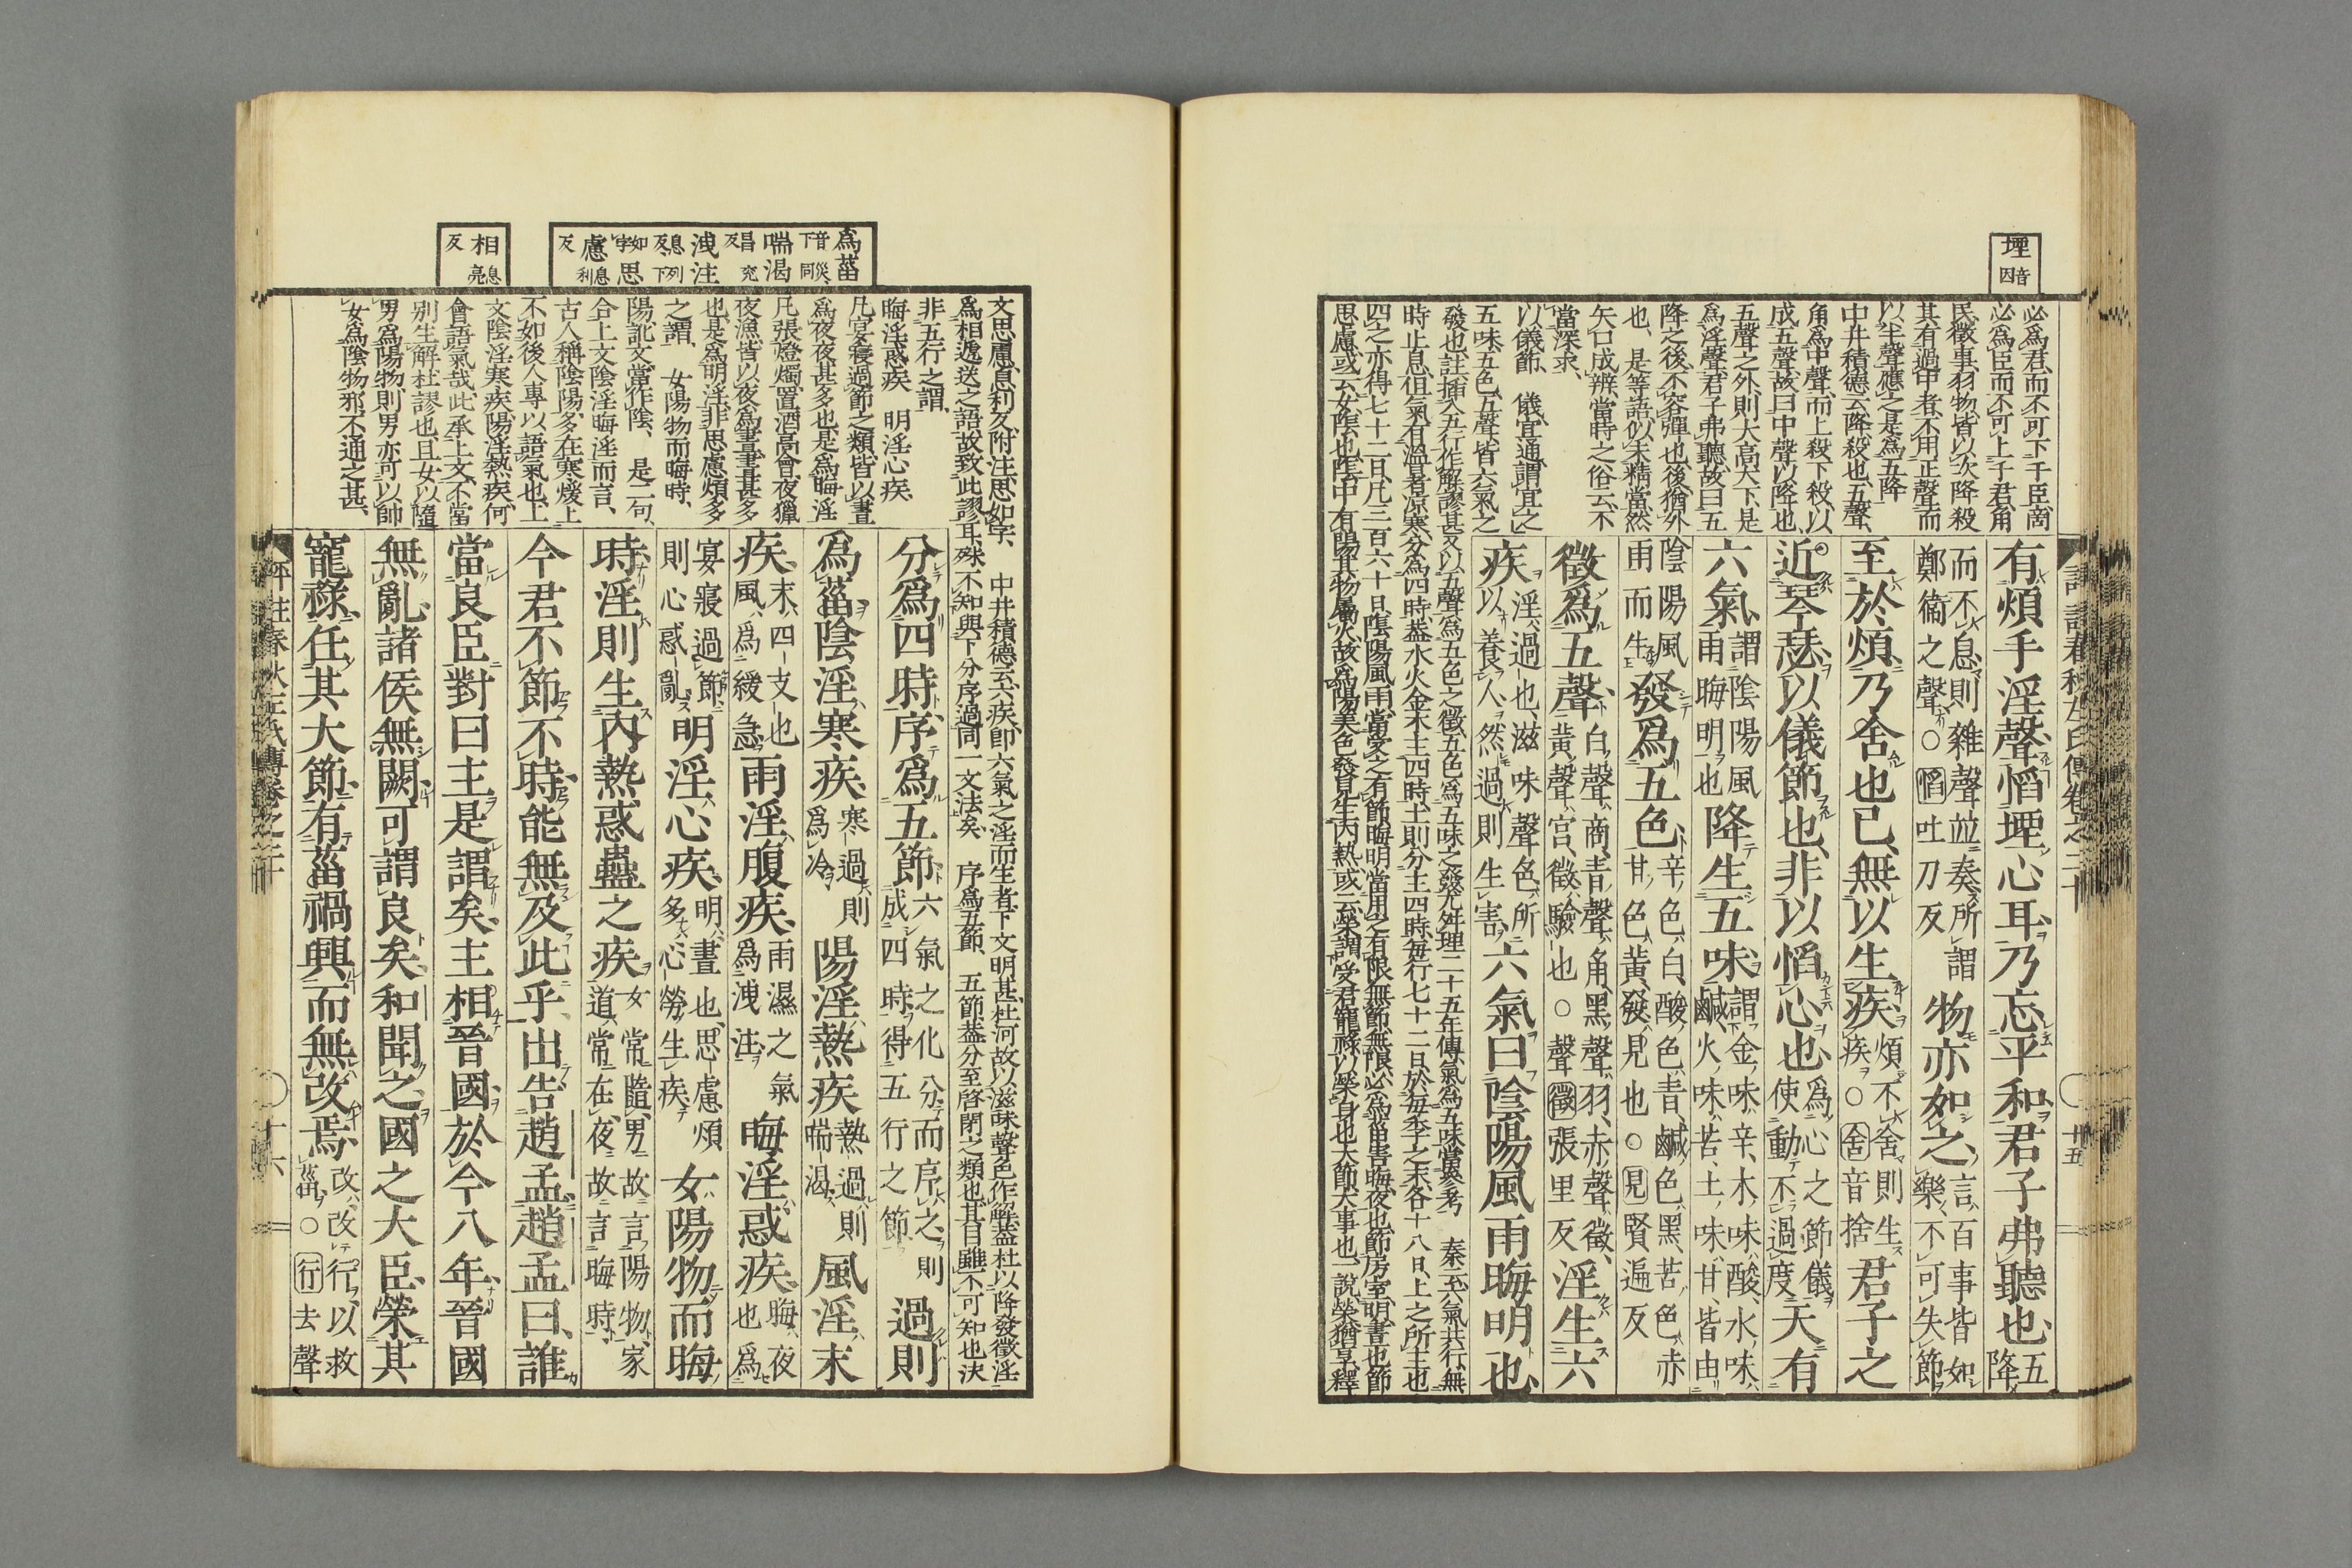 堙
音因
必為君、而不可下于臣、商
必為臣而不可上于君、角
民徵事、羽物、皆以次降殺
其有過中者不用正聲而
以半聲應之是為五降
中井積德云降、殺也、五聲、
角為中聲、而上殺下殺、以
成五聲、故曰中聲以降也、
五聲之外、則大高大下、是
為淫聲、君子弗聽、故曰五
降之後、不容彈也、後猶外
也、是等語、似未精當、然
矢口成辨、當時之俗云、不
當深求、
以儀節、 儀宜通謂宜之
五味五色、五聲、皆六氣之
發也、註挿入五行作解、謬甚、又以五聲為五色之徵、五色為五味之發、尤舛理、二十五年傳、氣為五味、當參考 秦云、六氣共行、無
時止息、但氣有溫暑涼寒、分為四時、蓋水火金木主四時、土則分主四時、每行七十二日、於每季之末、各十八日、上之所主也
四之亦得七十二日、凡三百六十日、陰陽風雨、當受之有節、晦明、當用之有限、無節無限、必為菑害、晦、夜也、節房室、明、晝也、節
思慮、或云、女陰也、陰中有陽、其物屬火、故為陽、美色發見、生內熱、或云、榮謂受君寵祿以榮身也、大節、大事也、一說、榮猶享、釋
有煩手淫聲慆堙心耳、乃忘平和、君子弗聽也、五降
而不息、則雜聲並奏、所謂鄭衞之聲、○慆吐刀反 物亦如之、言百事皆如樂、不可失節
至於煩、乃舍也已、無以生疾、煩不舍則生疾、○舍音捨 君子之
近琴瑟、以儀節也、非以慆心也、為心之節儀使動不過度 天有
六氣、謂陰陽風雨晦明也 降生五味、謂金味辛、木味酸、水味鹹、火味苦、土味甘、皆由
陰陽風雨而生 發為五色、辛色白、酸色青、鹹色黑、苦色赤、甘色黃、發見也○見賢遍反
徵為五聲、白聲商、青聲角、黑聲羽、赤聲徵、黃聲宮、徵驗也○聲徵張里反 淫生六
疾、淫過也、滋味聲色、所以養人、然過則生害、六氣曰陰陽風雨晦明也、
評註春秋左氏傳卷之二十
廿五
為菑 音災下同
喘渴 昌兖反
洩注 息列反下
思 如字
慮 息利反
相 息亮反
文思慮、息利反、附注、思如字、 中井積德云、六疾、即六氣之淫而生者、下文明甚、杜何故以滋味聲色作解、蓋杜以降發徵淫
為相遞送之語、故致此謬耳、殊不知與下分序過同一文法矣、 序為五節、 五節、蓋分至啓閉之類也、其目雖不可知也、決
非五行之謂、
晦淫惑疾 明淫心疾、
凡宴寢過節之類、皆以晝
為夜、夜甚多也、是為晦淫
凡張燈燭、置酒高會、夜獵
夜漁、皆以夜為晝、晝甚多
也、是為明淫、非思慮煩多
之謂、 女陽物而晦時、
陽訛文、當作陰、 是二句、
合上文陰淫晦淫而言、
古人稱陰陽、多在寒煖上
不如後人專以語氣也、上
文陰淫寒疾、陽淫熱疾、何
會語氣哉、此承上文、不當
別生解、杜謬也、且女以隨
男為陽物、則男亦可以帥
女為陰物邪、不通之甚、
分為四時、序為五節、六氣之化、分而序之、則成四時、得五行之節 過則
為菑、陰淫寒疾、寒過則為冷 陽淫熱疾 熱過則喘渴、風淫末
疾、末、四支也風、為緩急 雨淫腹疾、雨濕之氣為洩注 晦淫惑疾、晦、夜也、為
宴寢過節則心惑亂 明淫心疾、明、晝也、思慮煩多、心勞生疾 女陽物而晦
時、淫則生內熱惑蠱之疾 女常隨男、故言陽物、家道常在夜、故言晦時、
今君不節不時、能無及此乎、出告趙孟、趙孟曰、誰
當良臣、對曰、主是謂矣、主相晉國、於今八年、晉國
無亂、諸侯無闕、可謂良矣、和聞之、國之大臣、榮其
寵祿、任其大節、有菑禍興、而無改焉、改、改行以救菑、○行去聲
評註春秋左氏傳卷之二十
廿六